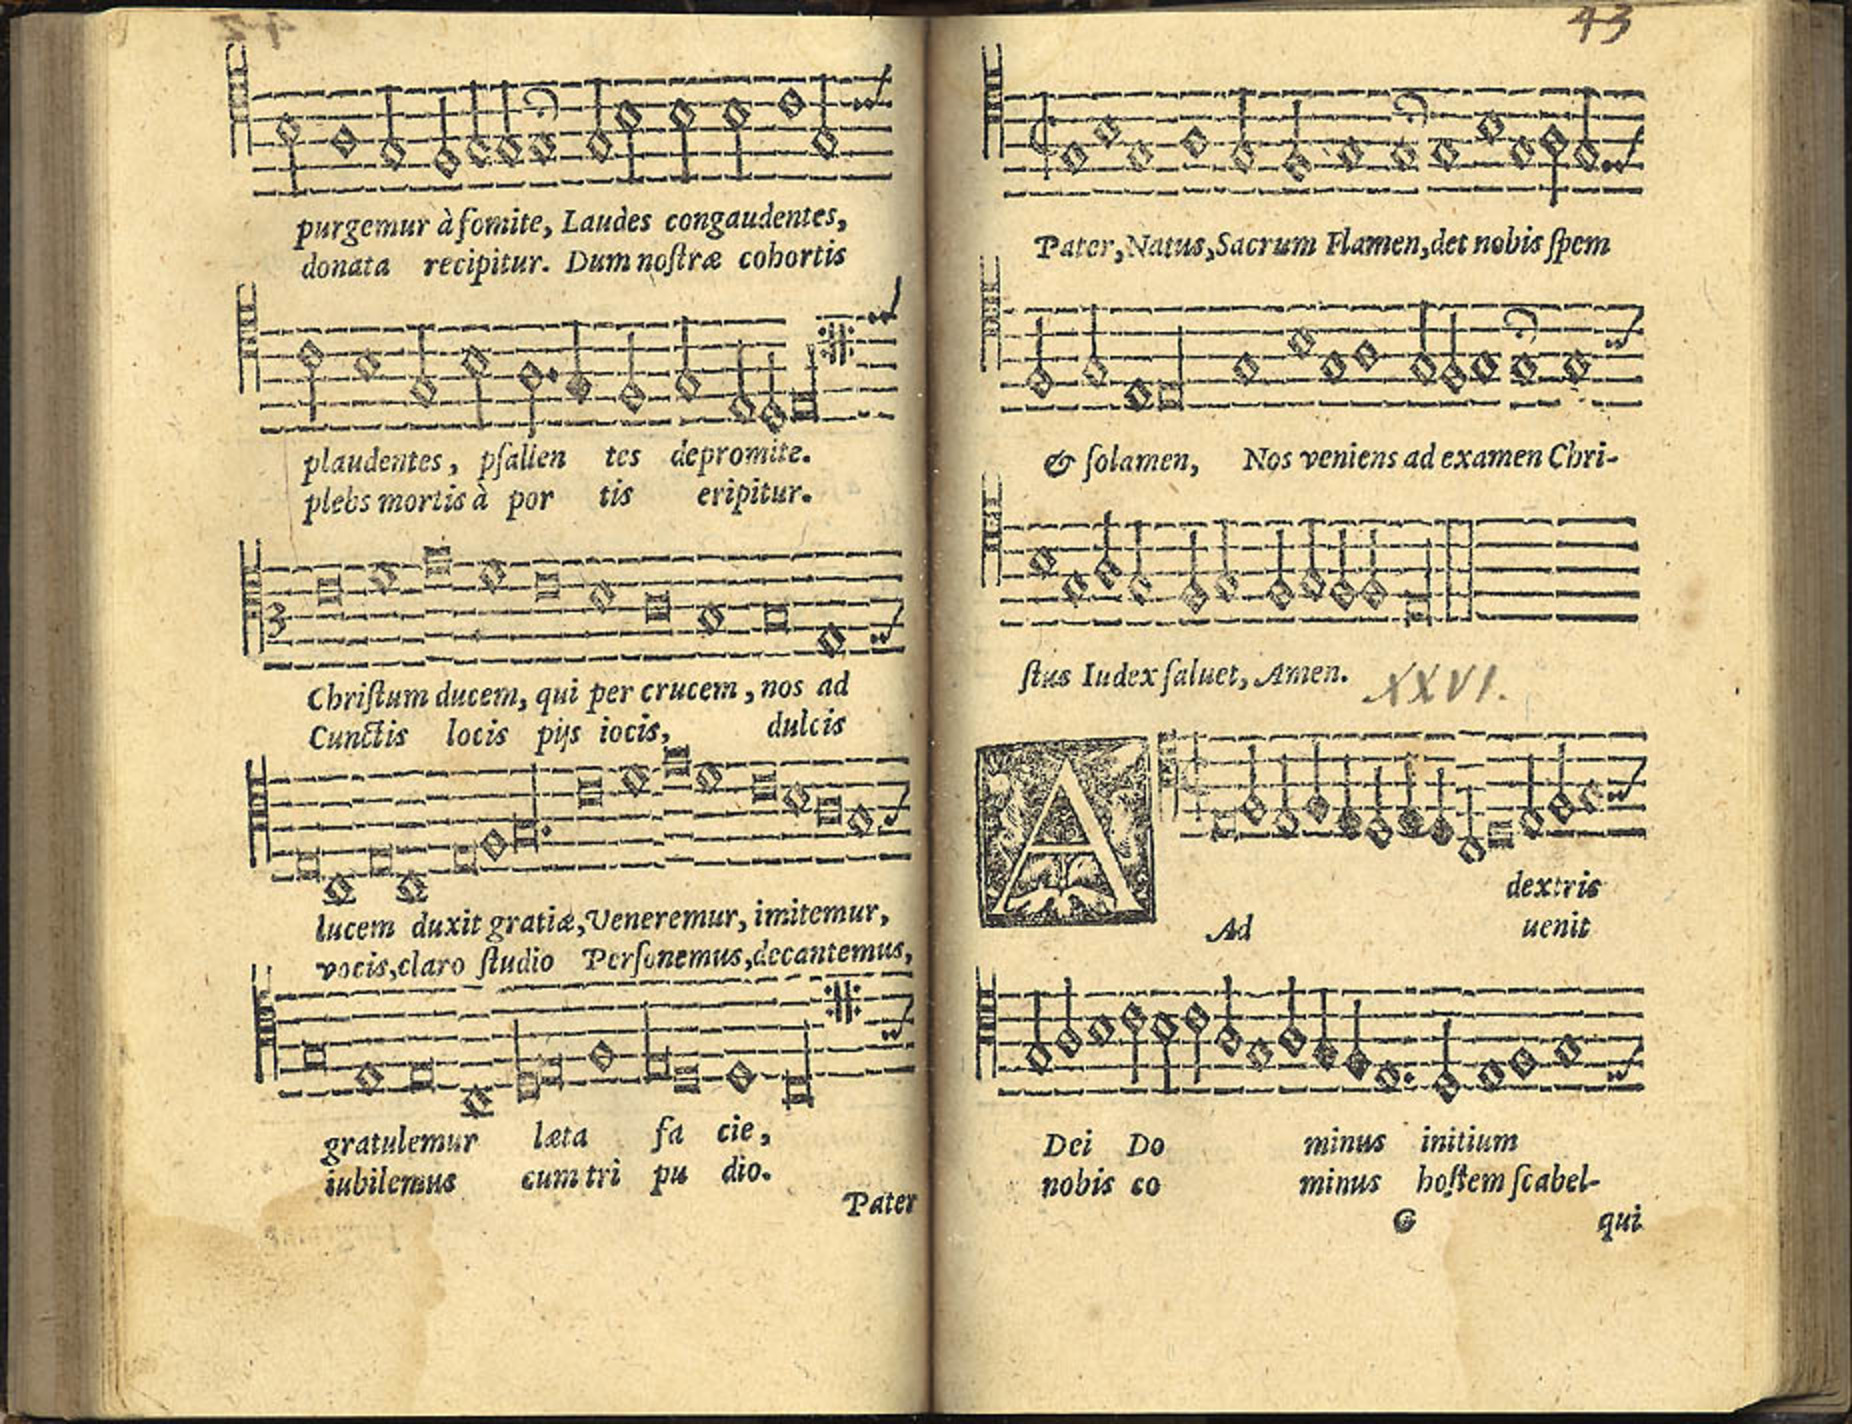 purgemur à fomite, Laudes congaudentes,
donata recipitur. Dum noſtræ cohortis
plaudentes, pſallen tes depromite.
plebs mortis à por tis eripitur.
3
Chriſtum ducem, qui per crucem, nos ad
Cunctis locis pijs iocis, dulcis
lucem duxit gratiæ, Veneremur, imitemur,
vocis, claro ſtudio Perſonemus, decantemus,
gratulemur læta fa cie,
iubilemus cum tri pu dio.
Pater
43
Pater, Natus, Sacrum Flamen, det nobis ſpem
& ſolamen, Nos veniens ad examen Chri-
ſtus Iudex ſaluet, Amen. XXVI.
A
dextris
Ad uenit
Dei Do minus initium
nobis co minus hoſtem ſcabel-
G qui